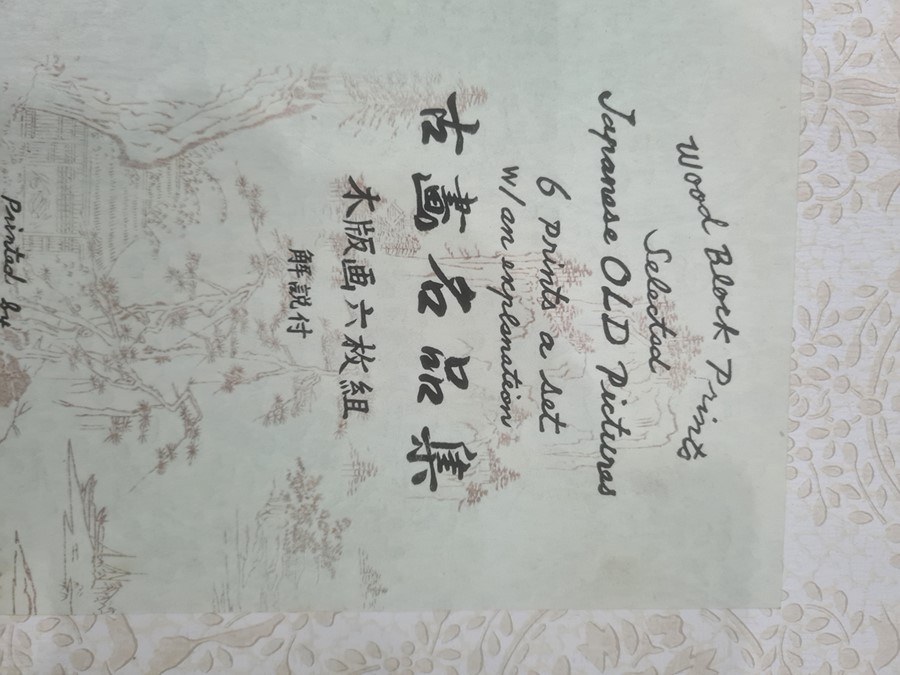 Wood Block Prints
Selected
Japanese OLD Pictures
6 prints a set
w/ an explanation
古畫名品集
木版画六枚組
解説付
Printed by